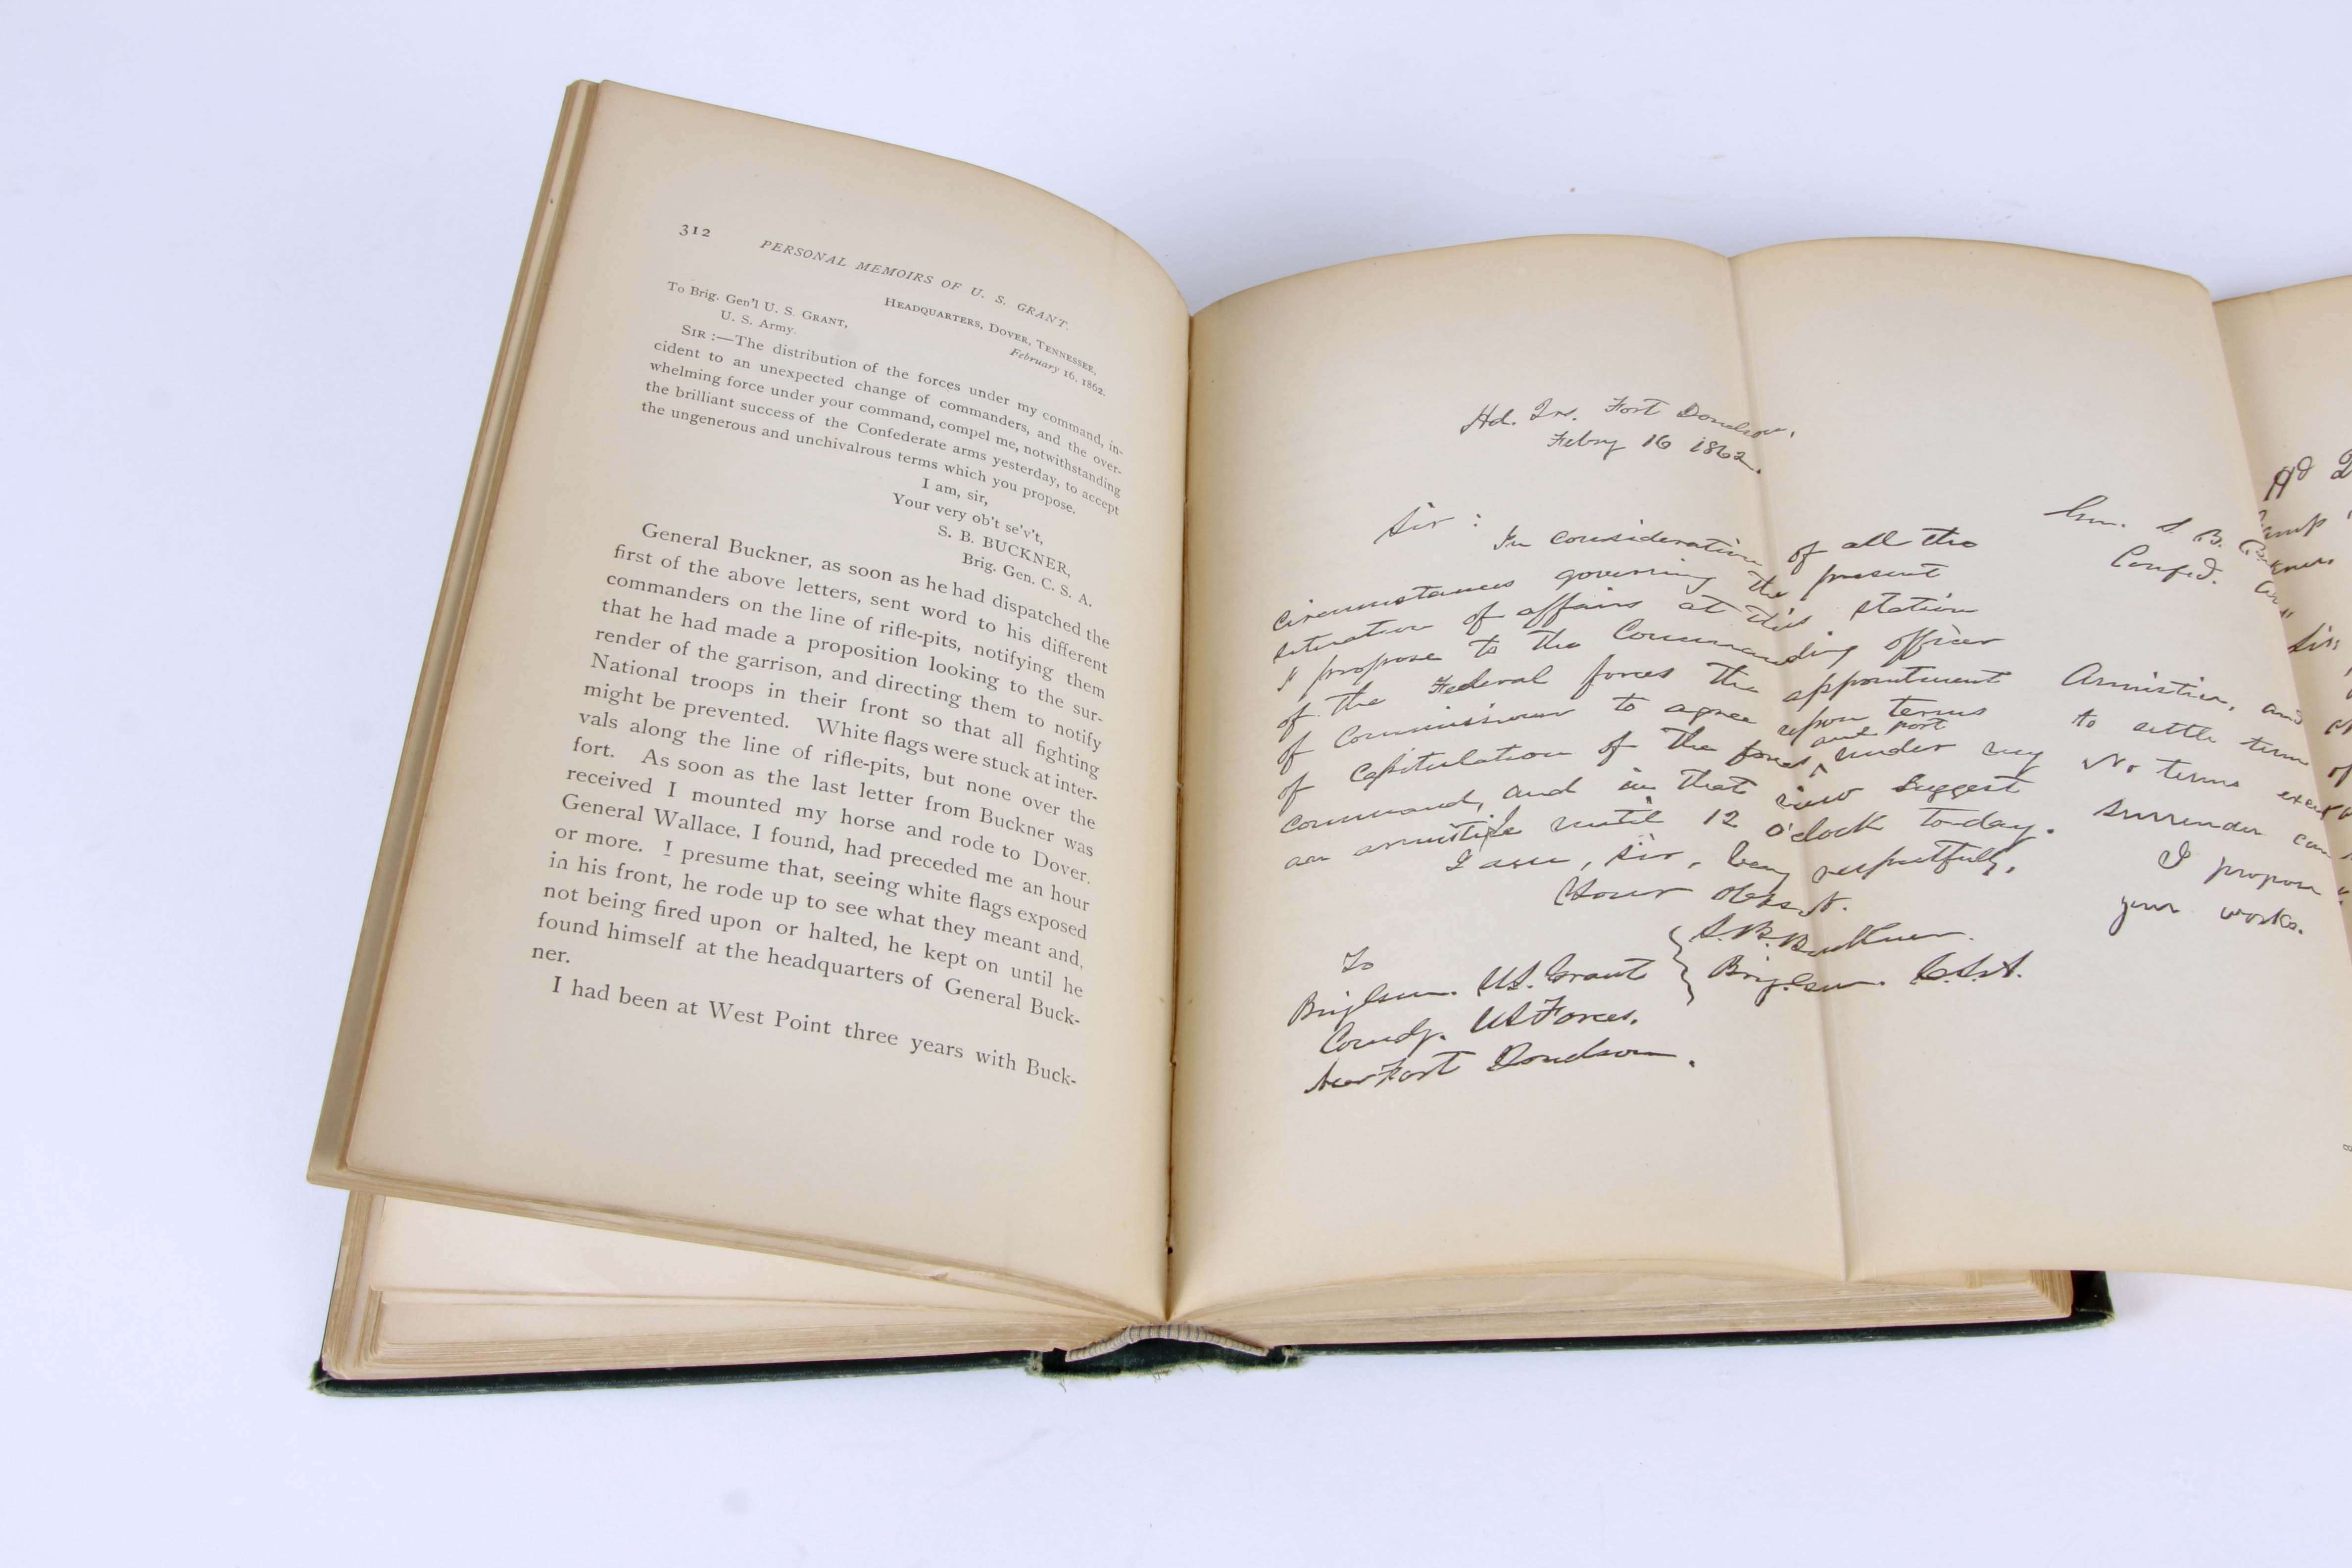 312
PERSONAL MEMOIRS OF U. S. GRANT.
HEADQUARTERS, DOVER, TENNESSEE,
February 16, 1862.
To Brig. Gen'l U. S. GRANT,
U. S. Army.
SIR :—The distribution of the forces under my command, in-
cident to an unexpected change of commanders, and the over-
whelming force under your command, compel me, notwithstanding
the brilliant success of the Confederate arms yesterday, to accept
the ungenerous and unchivalrous terms which you propose.
I am, sir,
Your very ob't se'v't,
S. B. BUCKNER,
Brig. Gen. C. S. A.
General Buckner, as soon as he had dispatched the
first of the above letters, sent word to his different
commanders on the line of rifle-pits, notifying them
that he had made a proposition looking to the sur-
render of the garrison, and directing them to notify
National troops in their front so that all fighting
might be prevented. White flags were stuck at inter-
vals along the line of rifle-pits, but none over the
fort. As soon as the last letter from Buckner was
received I mounted my horse and rode to Dover.
General Wallace, I found, had preceded me an hour
or more. I presume that, seeing white flags exposed
in his front, he rode up to see what they meant and,
not being fired upon or halted, he kept on until he
found himself at the headquarters of General Buck-
ner.
I had been at West Point three years with Buck-
Hd. Qrs. Fort Donelson,
Febry 16 1862.
Sir :
In consideration of all the
circumstances governing the present
situation of affairs at this station
I propose to the Commanding officer
of the Federal forces the appointment
of Commissioners to agree upon terms
of capitulation of the forces and post under my
command, and in that view suggest
an armistice until 12 o'clock today.
I am, sir, very respectfully,
Your obt st.
S. B. Buckner.
Brig. Gen. C.S.A.
To
Brig Gen. U.S. Grant
Comdg. US Forces.
Near Fort Donelson.
Gen. S. B.
Confed.
Armistice, and
to settle terms
No terms except
surrender can
I propose
your works.
Hd
Sir